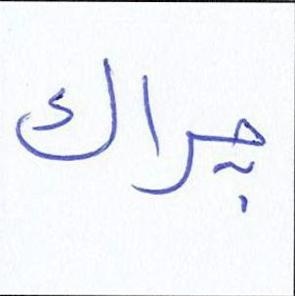 چراك